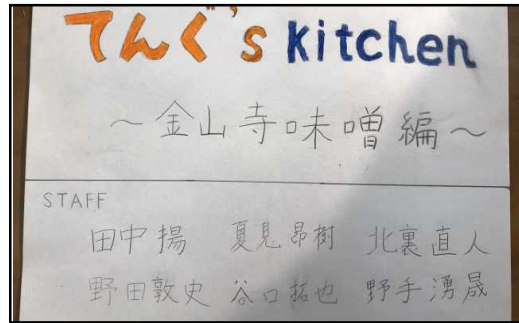 てんぐ's kitchen
～金山寺味噌編～
STAFF
田中揚 夏見昴樹 北裏直人
野田敦史 谷口拓也 野手湧晟